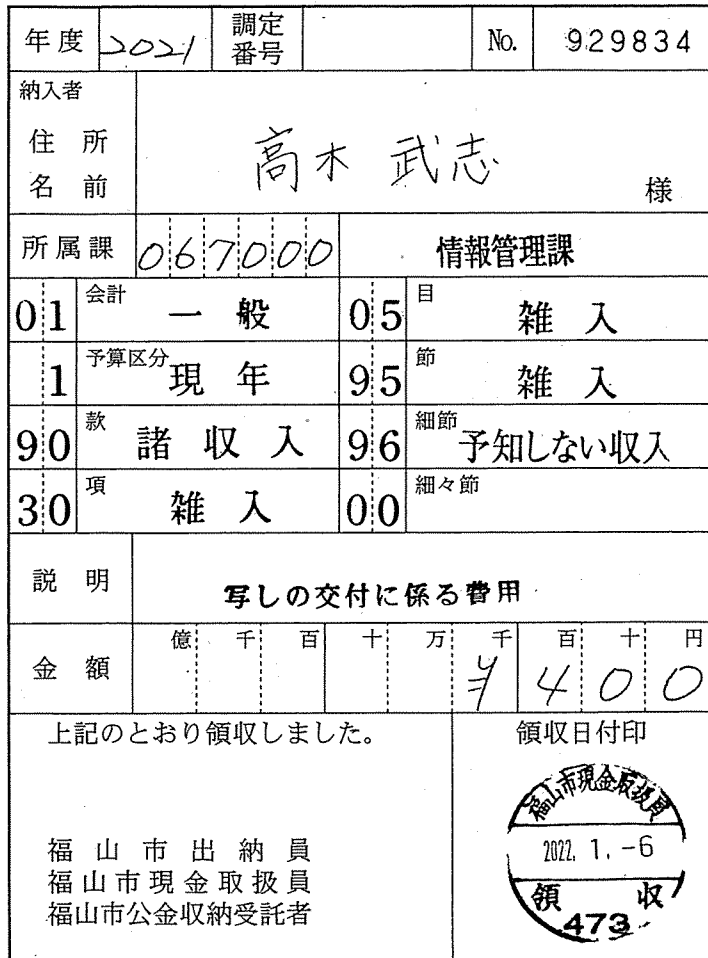 年度 2021 調定番号 No. 929834
納入者
住所
名前 高木 武志 様
所属課 067000 情報管理課
01 会計 一般 05 目 雑入
1 予算区分 現年 95 節 雑入
90 款 諸収入 96 細節 予知しない収入
30 項 雑入 00 細々節
説明 写しの交付に係る費用
億 千 百 十 万 千 百 十 円
金額 ¥ 4 0 0
上記のとおり領収しました。 領収日付印
福山市出納員
福山市現金取扱員
福山市公金収納受託者
福山市現金取扱員
2022. 1. -6
領収
473